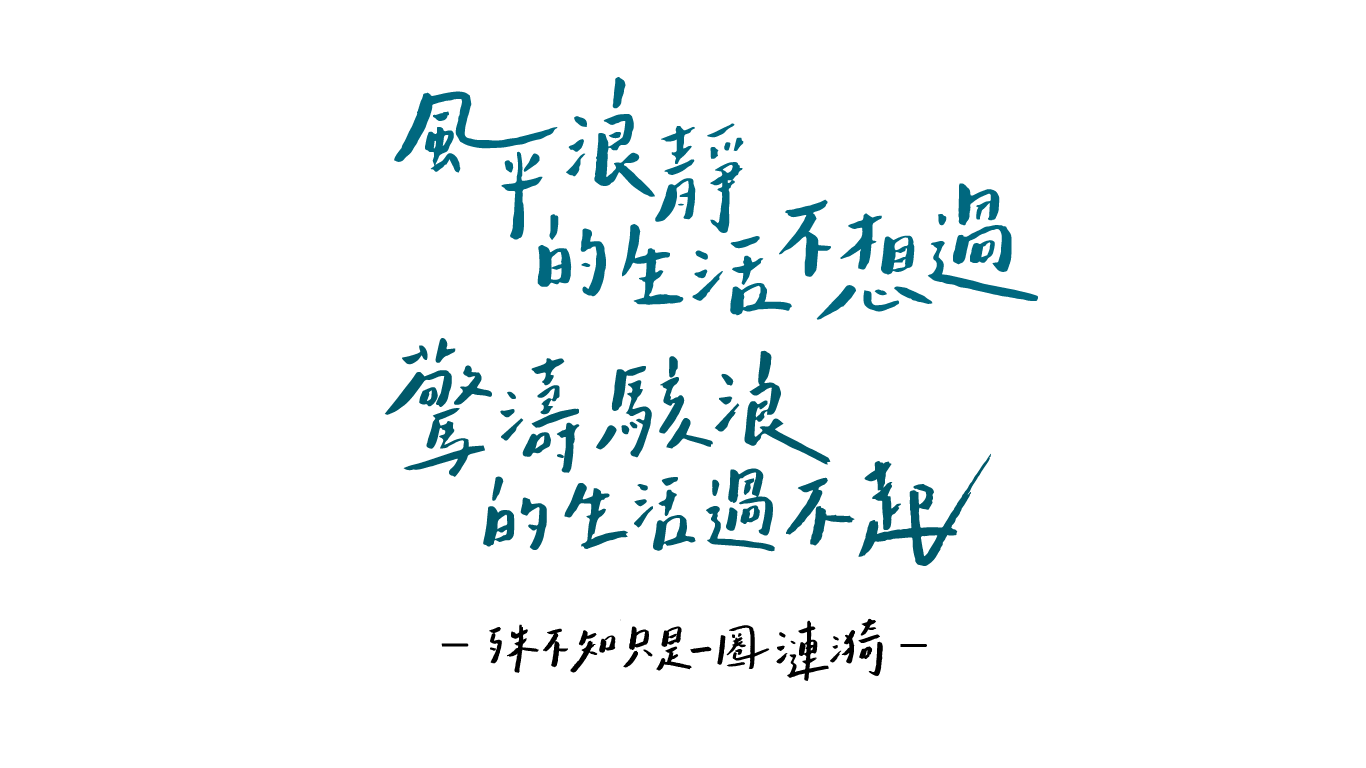 風平浪靜
的生活不想過
驚濤駭浪
的生活過不起
－殊不知只是一圈漣漪－